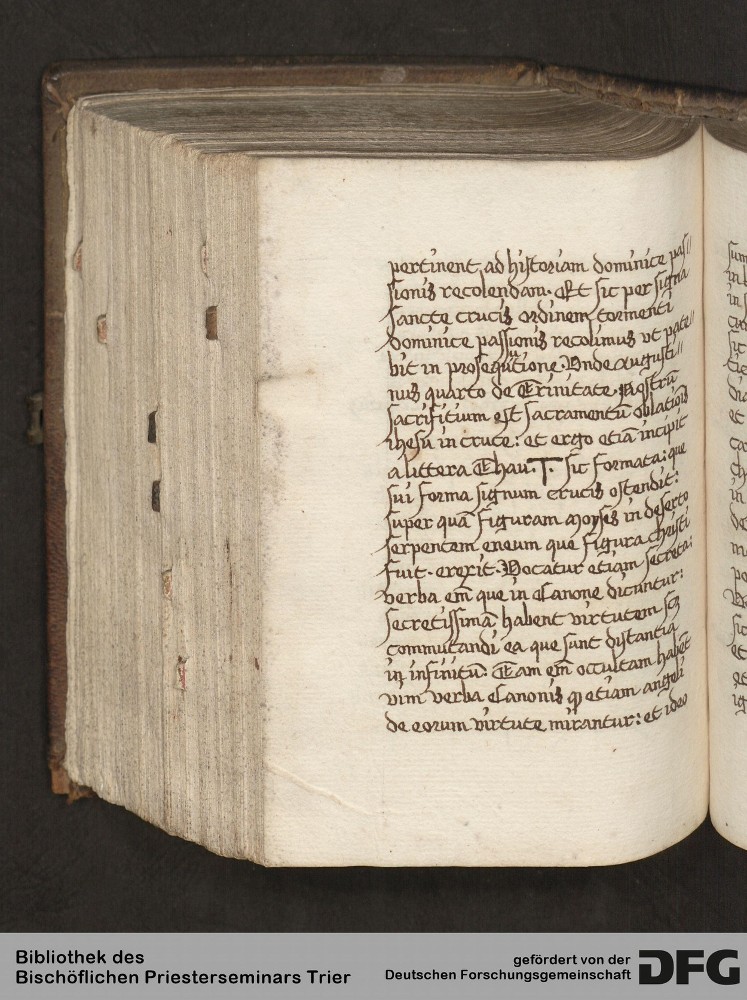 pertinent, ad historiam dominice pas//
sionis recolendam. Et sic per signa
sancte crucis ordinem tormenti
dominice passionis recolimus vt pate//
bit in proseqūtione. Vnde augusti//
nus quarto de Trinitate. Nostrū
sacrifitium est sacramentū oblatiōis
ihesu in cruce: et ergo etiā incipit
a littera Thau. T. sic formata: que
sui forma signum crucis ostendit:
super quā figuram Moyses in deserto
serpentem eneum que figura christi
fuit. erexit. Vocatur etiam secreta:
verba em̄ que in Canone dicuntur:
secretissimā habent virtutem scꝫ
commutandi ea que sunt distantia
in infinitū. Tam em̄ occultam habēt
vim verba Canonis ꝙ etiam angeli
de eorum virtute mirantur: et ideo
Bibliothek des
Bischöflichen Priesterseminars Trier
gefördert von der
Deutschen Forschungsgemeinschaft
DFG